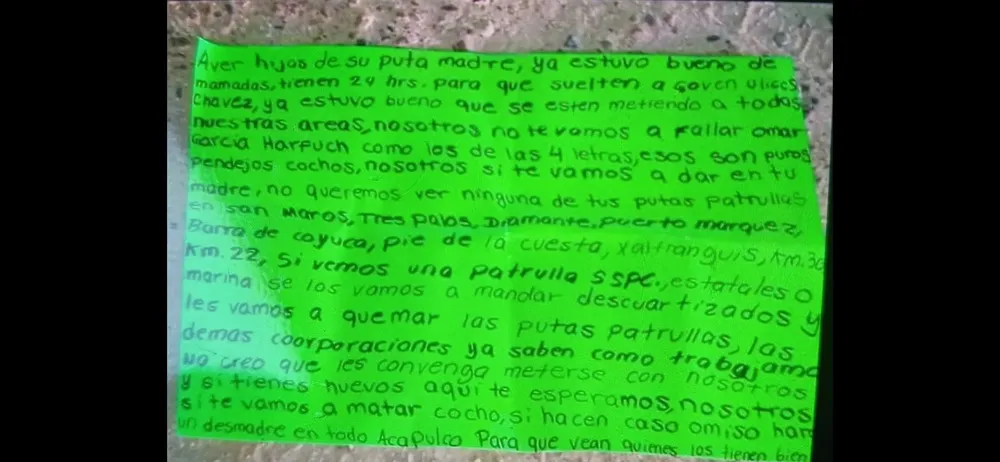 Aver hijos de su puta madre, ya estuvo bueno de
mamadas, tienen 24 hrs. para que suelten a Goven Ulices
Chavez, ya estuvo bueno que se esten metiendo a todas
nuestras areas, nosotros no te vamos a fallar omar
Garcia Harfuch como los de las 4 letras, esos son puros
pendejos cochos, nosotros si te vamos a dar en tu
madre, no queremos ver ninguna de tus putas patrullas
en san Maros, Tres palos, Diamante, puerto marquez,
Barra de coyuca, pie de la cuesta, xaltranguis, Km. 30
Km. 22, si vemos una patrulla SSPC., estatales o
marina se los vamos a mandar descuartizados y
les vamos a quemar las putas patrullas, las
demas coorporaciones ya saben como trabajamo
no creo que les convenga meterse con nosotros
y si tienes huevos aqui te esperamos, nosotros
si te vamos a matar cocho, si hacen caso omiso hare
un desmadre en todo Acapulco Para que vean quienes los tienen bien